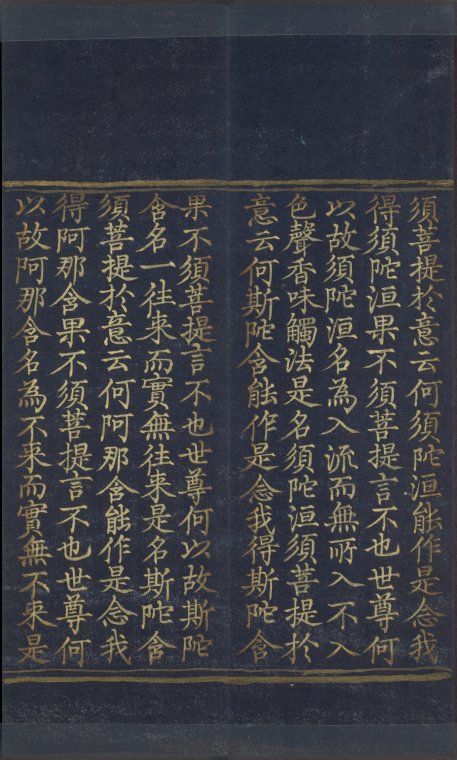 須菩提於意云何須陀洹能作是念我
得須陀洹果不須菩提言不也世尊何
以故須陀洹名為入流而無所入不入
色聲香味觸法是名須陀洹須菩提於
意云何斯陀含能作是念我得斯陀含
果不須菩提言不也世尊何以故斯陀
含名一往来而實無往来是名斯陀含
須菩提於意云何阿那含能作是念我
得阿那含果不須菩提言不也世尊何
以故阿那含名為不来而實無不来是